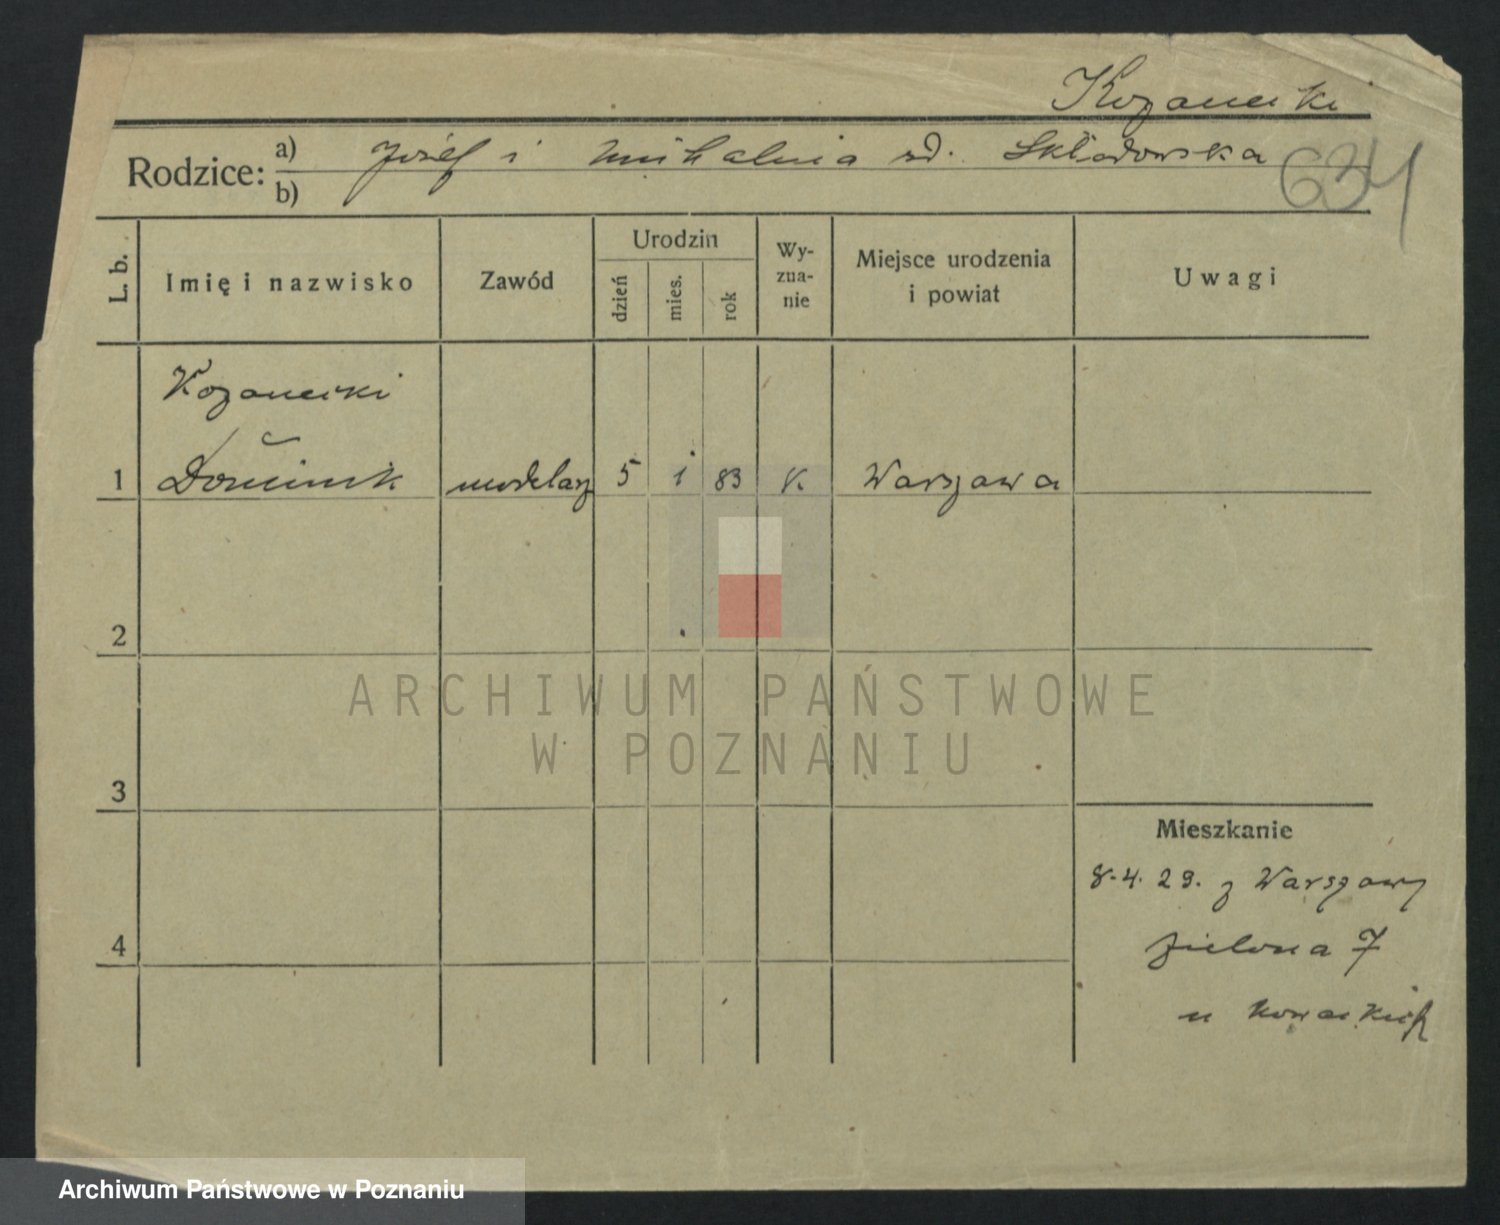 Kozanecki
Rodzice: a) Józef i Michalina zd. Skłodowska
b)
634
L. b. Imię i nazwisko Zawód Urodzin dzień mies. rok Wy-zna-nie Miejsce urodzenia i powiat Uwagi
Kozanecki
1 Dominik modelarz 5 1 83 k. Warszawa
2
ARCHIWUM PAŃSTWOWE
W POZNANIU
3
Mieszkanie
8.4.29. z Warszawy
4
Zielona 7
u
Archiwum Państwowe w Poznaniu